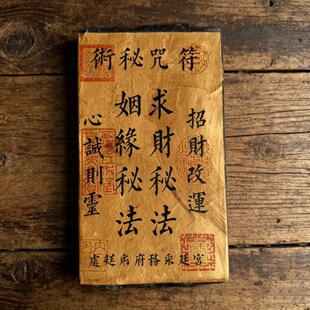 符咒秘術
招財改運
求財秘法
姻緣秘法
心誠則靈
宮 務府